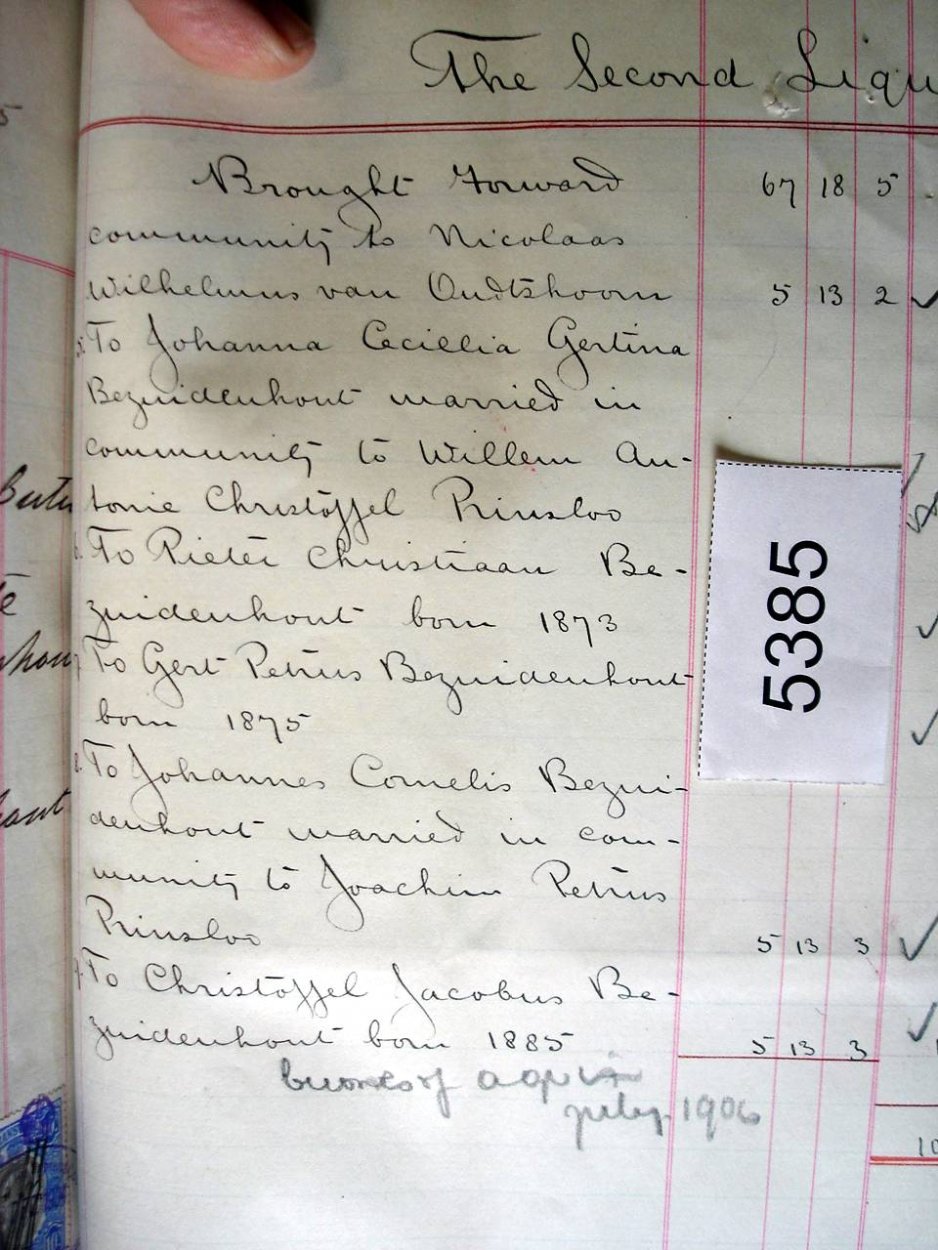 The Second Liqu
Brought Forward 67 18 5
community to Nicolaas
Wilhelmus van Oudtshoorn 5 13 2 ✓
5. To Johanna Cecillia Gertina
Bezuidenhout married in
community to Willem An-
tonie Christoffel Prinsloo
6. To Pieter Christiaan Be-
zuidenhout born 1873
7. To Gert Petrus Bezuidenhout
born 1875
8. To Johannes Cornelis Bezui-
denhout married in com-
munity to Joachim Petrus
Prinsloo 5 13 3 ✓
9. To Christoffel Jacobus Be-
zuidenhout born 1885 5 13 3 ✓
of
July 1906
10
5385